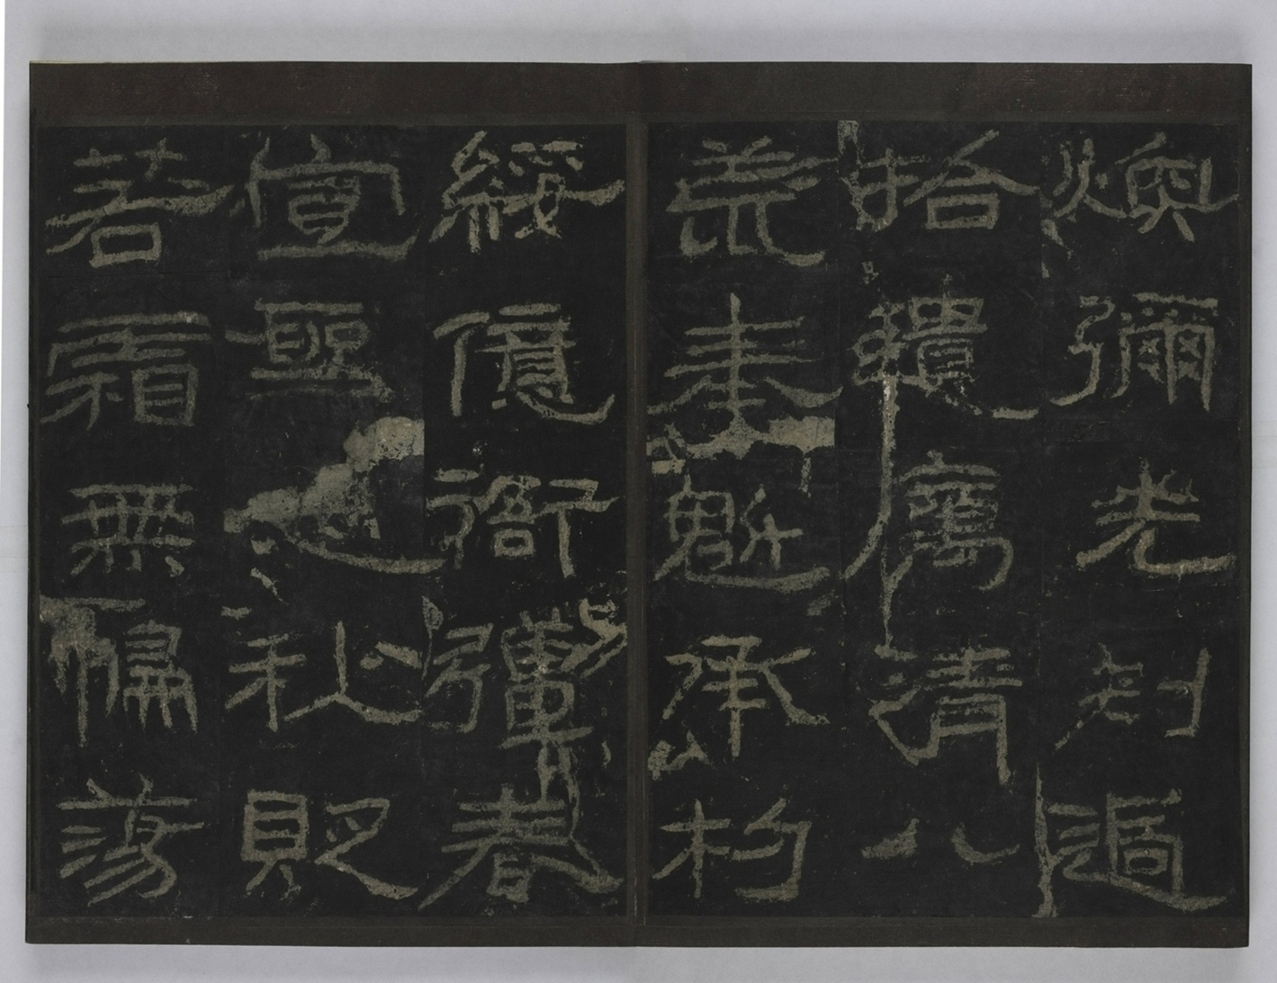 煥彌光刺過
拾遺厲清八
荒奉魁承杓
綏億衙彊春
宣聖恩秋貶
若霜無偏蕩